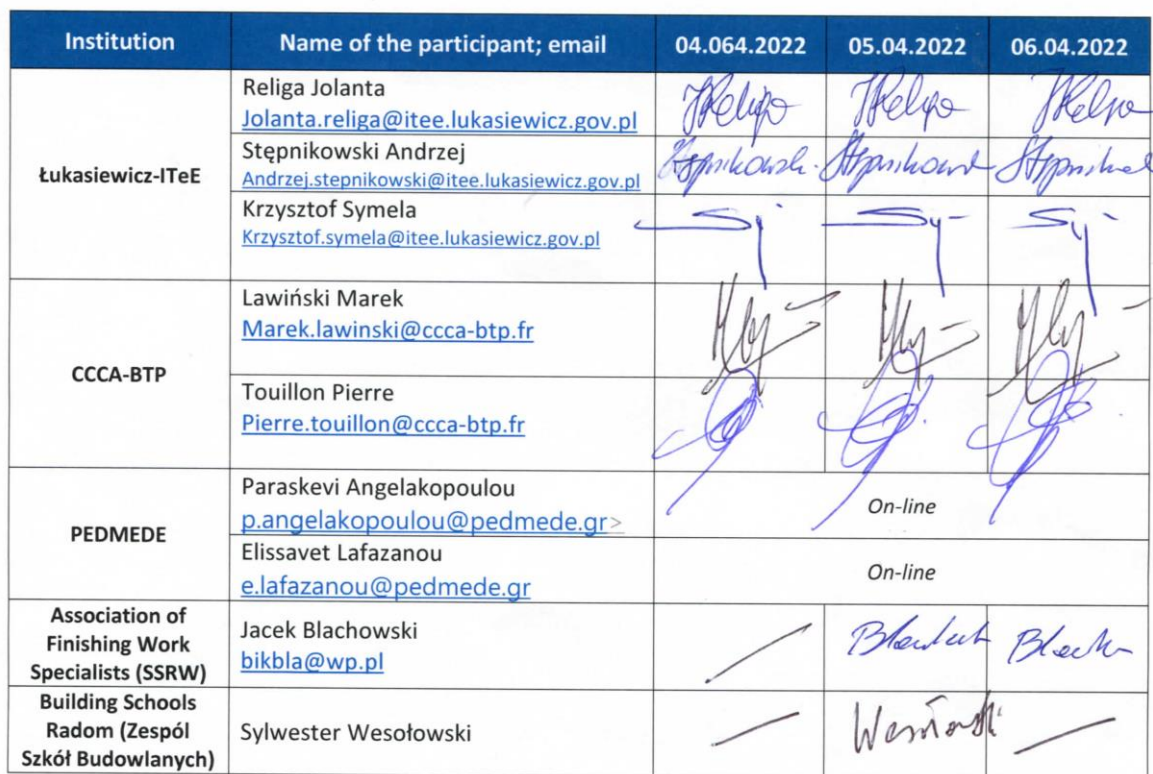 Institution Name of the participant; email 04.064.2022 05.04.2022 06.04.2022
Łukasiewicz-ITeE
Religa Jolanta
Jolanta.religa@itee.lukasiewicz.gov.pl
Stępnikowski Andrzej
Andrzej.stepnikowski@itee.lukasiewicz.gov.pl
Krzysztof Symela
Krzysztof.symela@itee.lukasiewicz.gov.pl
CCCA-BTP
Lawiński Marek
Marek.lawinski@ccca-btp.fr
Touillon Pierre
Pierre.touillon@ccca-btp.fr
PEDMEDE
Paraskevi Angelakopoulou
p.angelakopoulou@pedmede.gr>
On-line
Elissavet Lafazanou
e.lafazanou@pedmede.gr
On-line
Association of
Finishing Work
Specialists (SSRW)
Jacek Blachowski
bikbla@wp.pl
Building Schools
Radom (Zespól
Szkół Budowlanych)
Sylwester Wesołowski